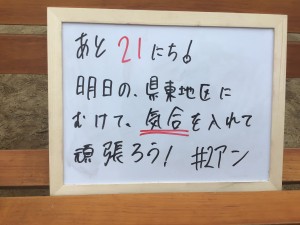 あと21にち!
明日の、県東地区に
むけて、気合を入れて
頑張ろう! #2アン